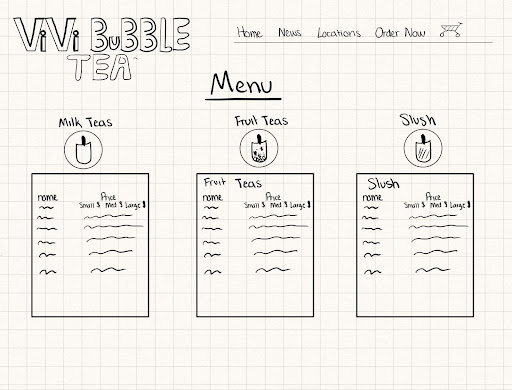 ViVi BuBBLE
TEA
Home News Locations Order Now
Menu
Milk Teas
Fruit Teas
Slush
name Price
Small $ Med $ Large $
Fruit Teas
name Price
Small $ Med $ Large $
Slush
name Price
Small $ Med $ Large $